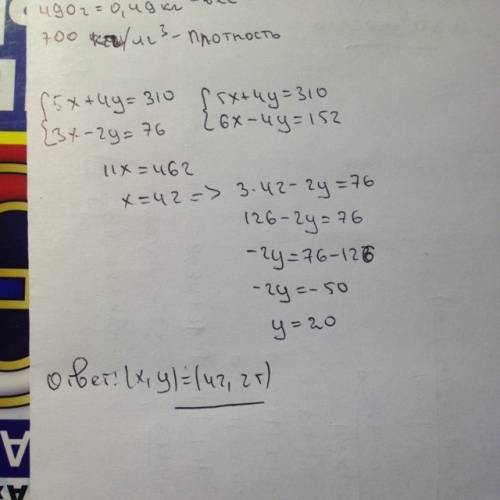 490г = 0,49 кг
700 кг/м³ - протность
{5x+4y=310 {5x+4y=310
{3x-2y=76 {6x-4y=152
11x=462
x=42 => 3·42-2y=76
126-2y=76
-2y=76-126
-2y=-50
y=20
Ответ: (x,y)=(42, 25)